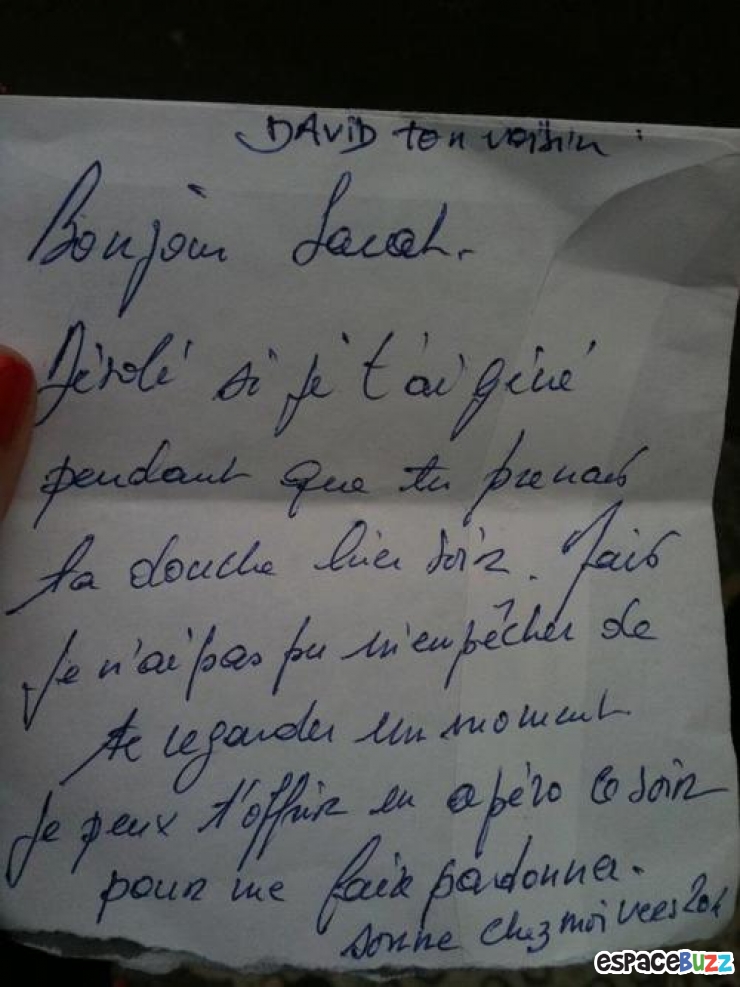 DAVID ton voisin :
Bonjour Sarah.
Désolé si je t'ai géné
pendant que tu prenais
ta douche hier soir. Mais
je n'ai pas pu m'empêcher de
te regarder un moment
Je peux t'offrir un apéro ce soir
pour me faire pardonner.
sonne chez moi vers 20h
esPACEBUZZ